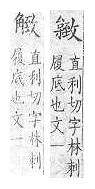 直利切字林刺
履底也文一
直利切字林刺
履底也文一